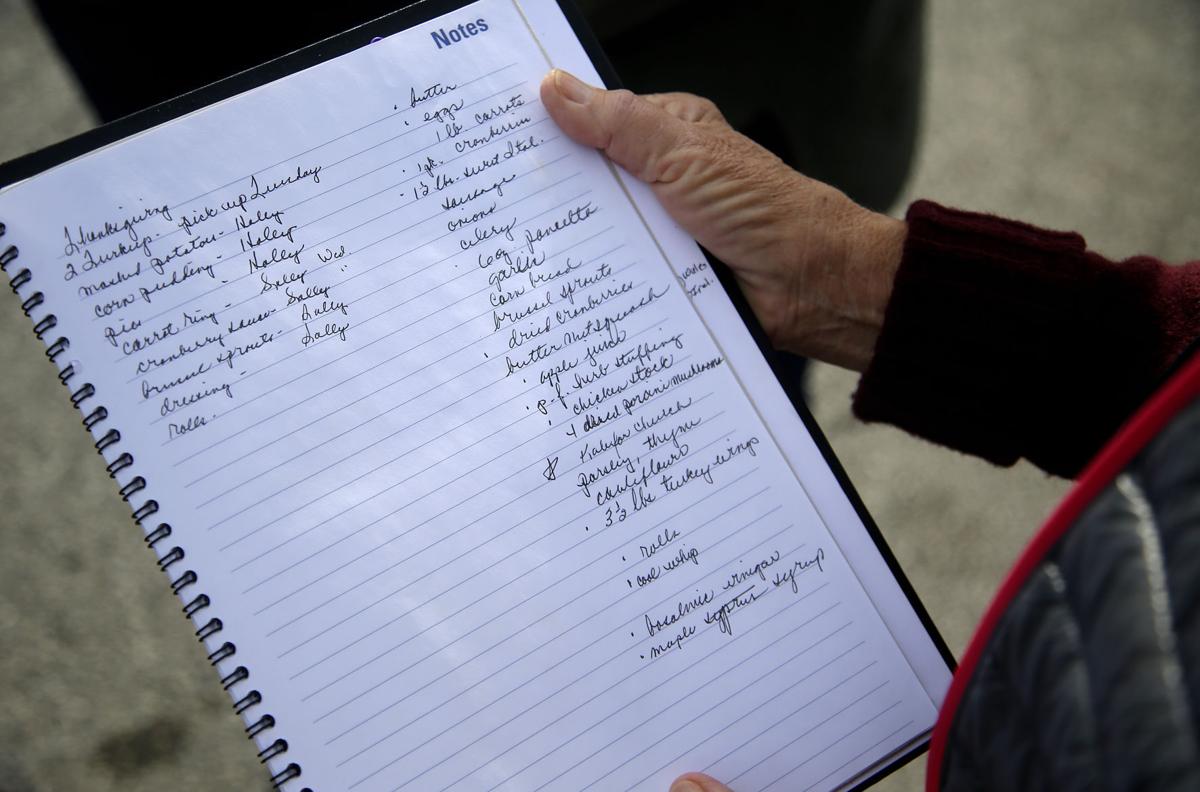 Notes
Thanksgiving
2 Turkeys - pick up Tuesday
mashed potatoes - Haley
corn pudding - Haley
pies - Holly
carrot ring - Sally Wed.
cranberry sauce - Sally "
brussel sprouts - Sally
dressing - Sally
rolls.
· butter
· eggs
1 lb carrots
· 1 pk. cranberries
- 1½ lbs. sweet Ital.
sausage
onions
celery
· 6 oz pancetta
garlic
corn bread
brussel sprouts
· dried cranberries
butternut squash
· apple juice
· p.f. herb stuffing
· chicken stock
4 dried porcini mushrooms
church
parsley, thyme
cauliflower
· 3½ lbs turkey wings
· rolls
· cool whip
· bosalmic vinegar
· maple syrup